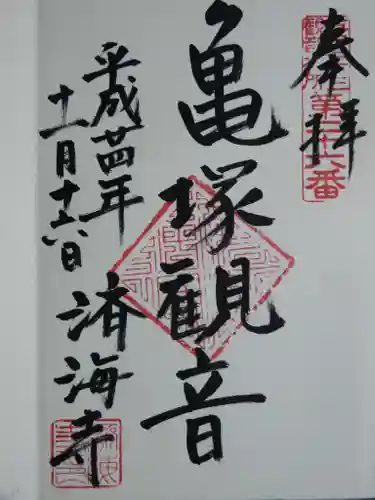 奉拝
第二十六番
亀塚観音
平成廿四年
十一月十六日
済海寺